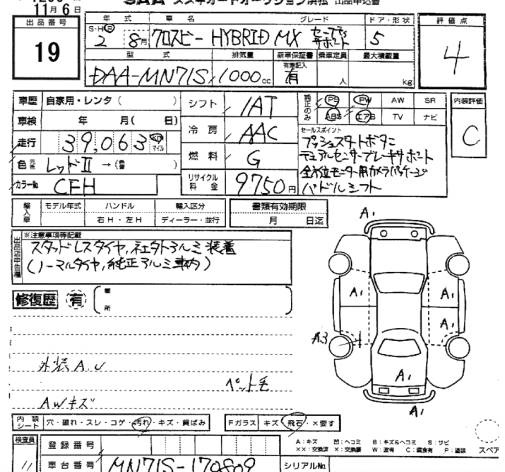 11月6日
SAA スズキオートオークション浜松 出品申込書
出品番号 19
年式 車名 グレード ドア・形状 評価点
2 8月 クロスビー HYBRID MX 5 4
型式 排気量 新車保証書 乗車定員 最大積載量
DAA-MN71S 1000cc 有 人 kg
車歴 自家用・レンタ( ) シフト IAT PS PW AW SR 内装評価
車検 年 月( 日) 冷房 AAC ABS エアB TV ナビ C
走行 39,063 km マイル セールスポイント
プッシュスタートボタン
デュアルセンサーブレーキサポート
色 レッドII →( ) 燃料 G 全方位モニター用カメラパッケージ
カラーNo CFH リサイクル料金 9750円 パドルシフト
輸入車 モデル年式 ハンドル 輸入区分 書類有効期限
右H・左H ディーラー・並行 月 日迄
※注意事項等記載
スタッドレスタイヤ,社外アルミ装着
(ノーマルタイヤ,純正アルミ車内)
修復歴 有 箇所
A1
A1 A1
A1
A3
A1
外装 A.U
ペット毛
AWキズ
内装シート 穴・破れ・スレ・コゲ・汚れ・キズ・黄ばみ Fガラス キズ 飛石・×要す
検査員 登録番号
車台番号 MN71S-170809 シリアルNo.